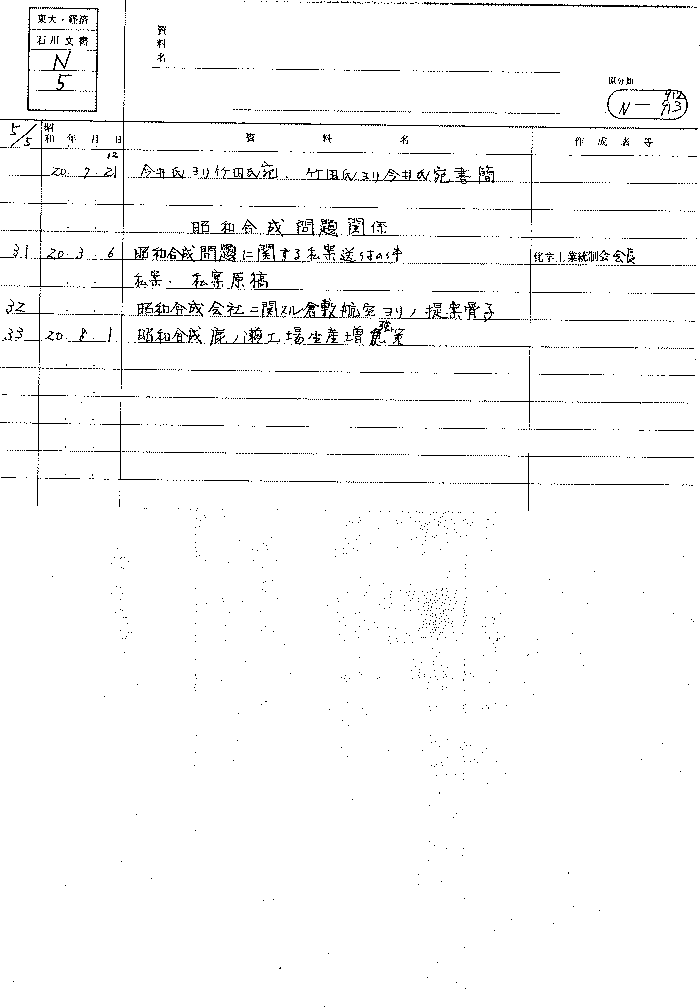 東大・経済
石川文書
N
5
資料名
原分類
N — 912 913
5/5 昭和 年 月 日 資料名 作成者等
12
20. 7. 21 今井氏ヨリ竹田氏宛、竹田氏ヨリ今井氏宛書簡
昭和合成問題関係
31 20. 3. 6 昭和合成問題に関する私案送付の件 化学工業統制会会長
私案. 私案原稿
32 昭和合成会社ニ関スル倉敷航空ヨリノ提案骨子
33 20. 8. 1 昭和合成鹿ノ瀬工場生産増強策